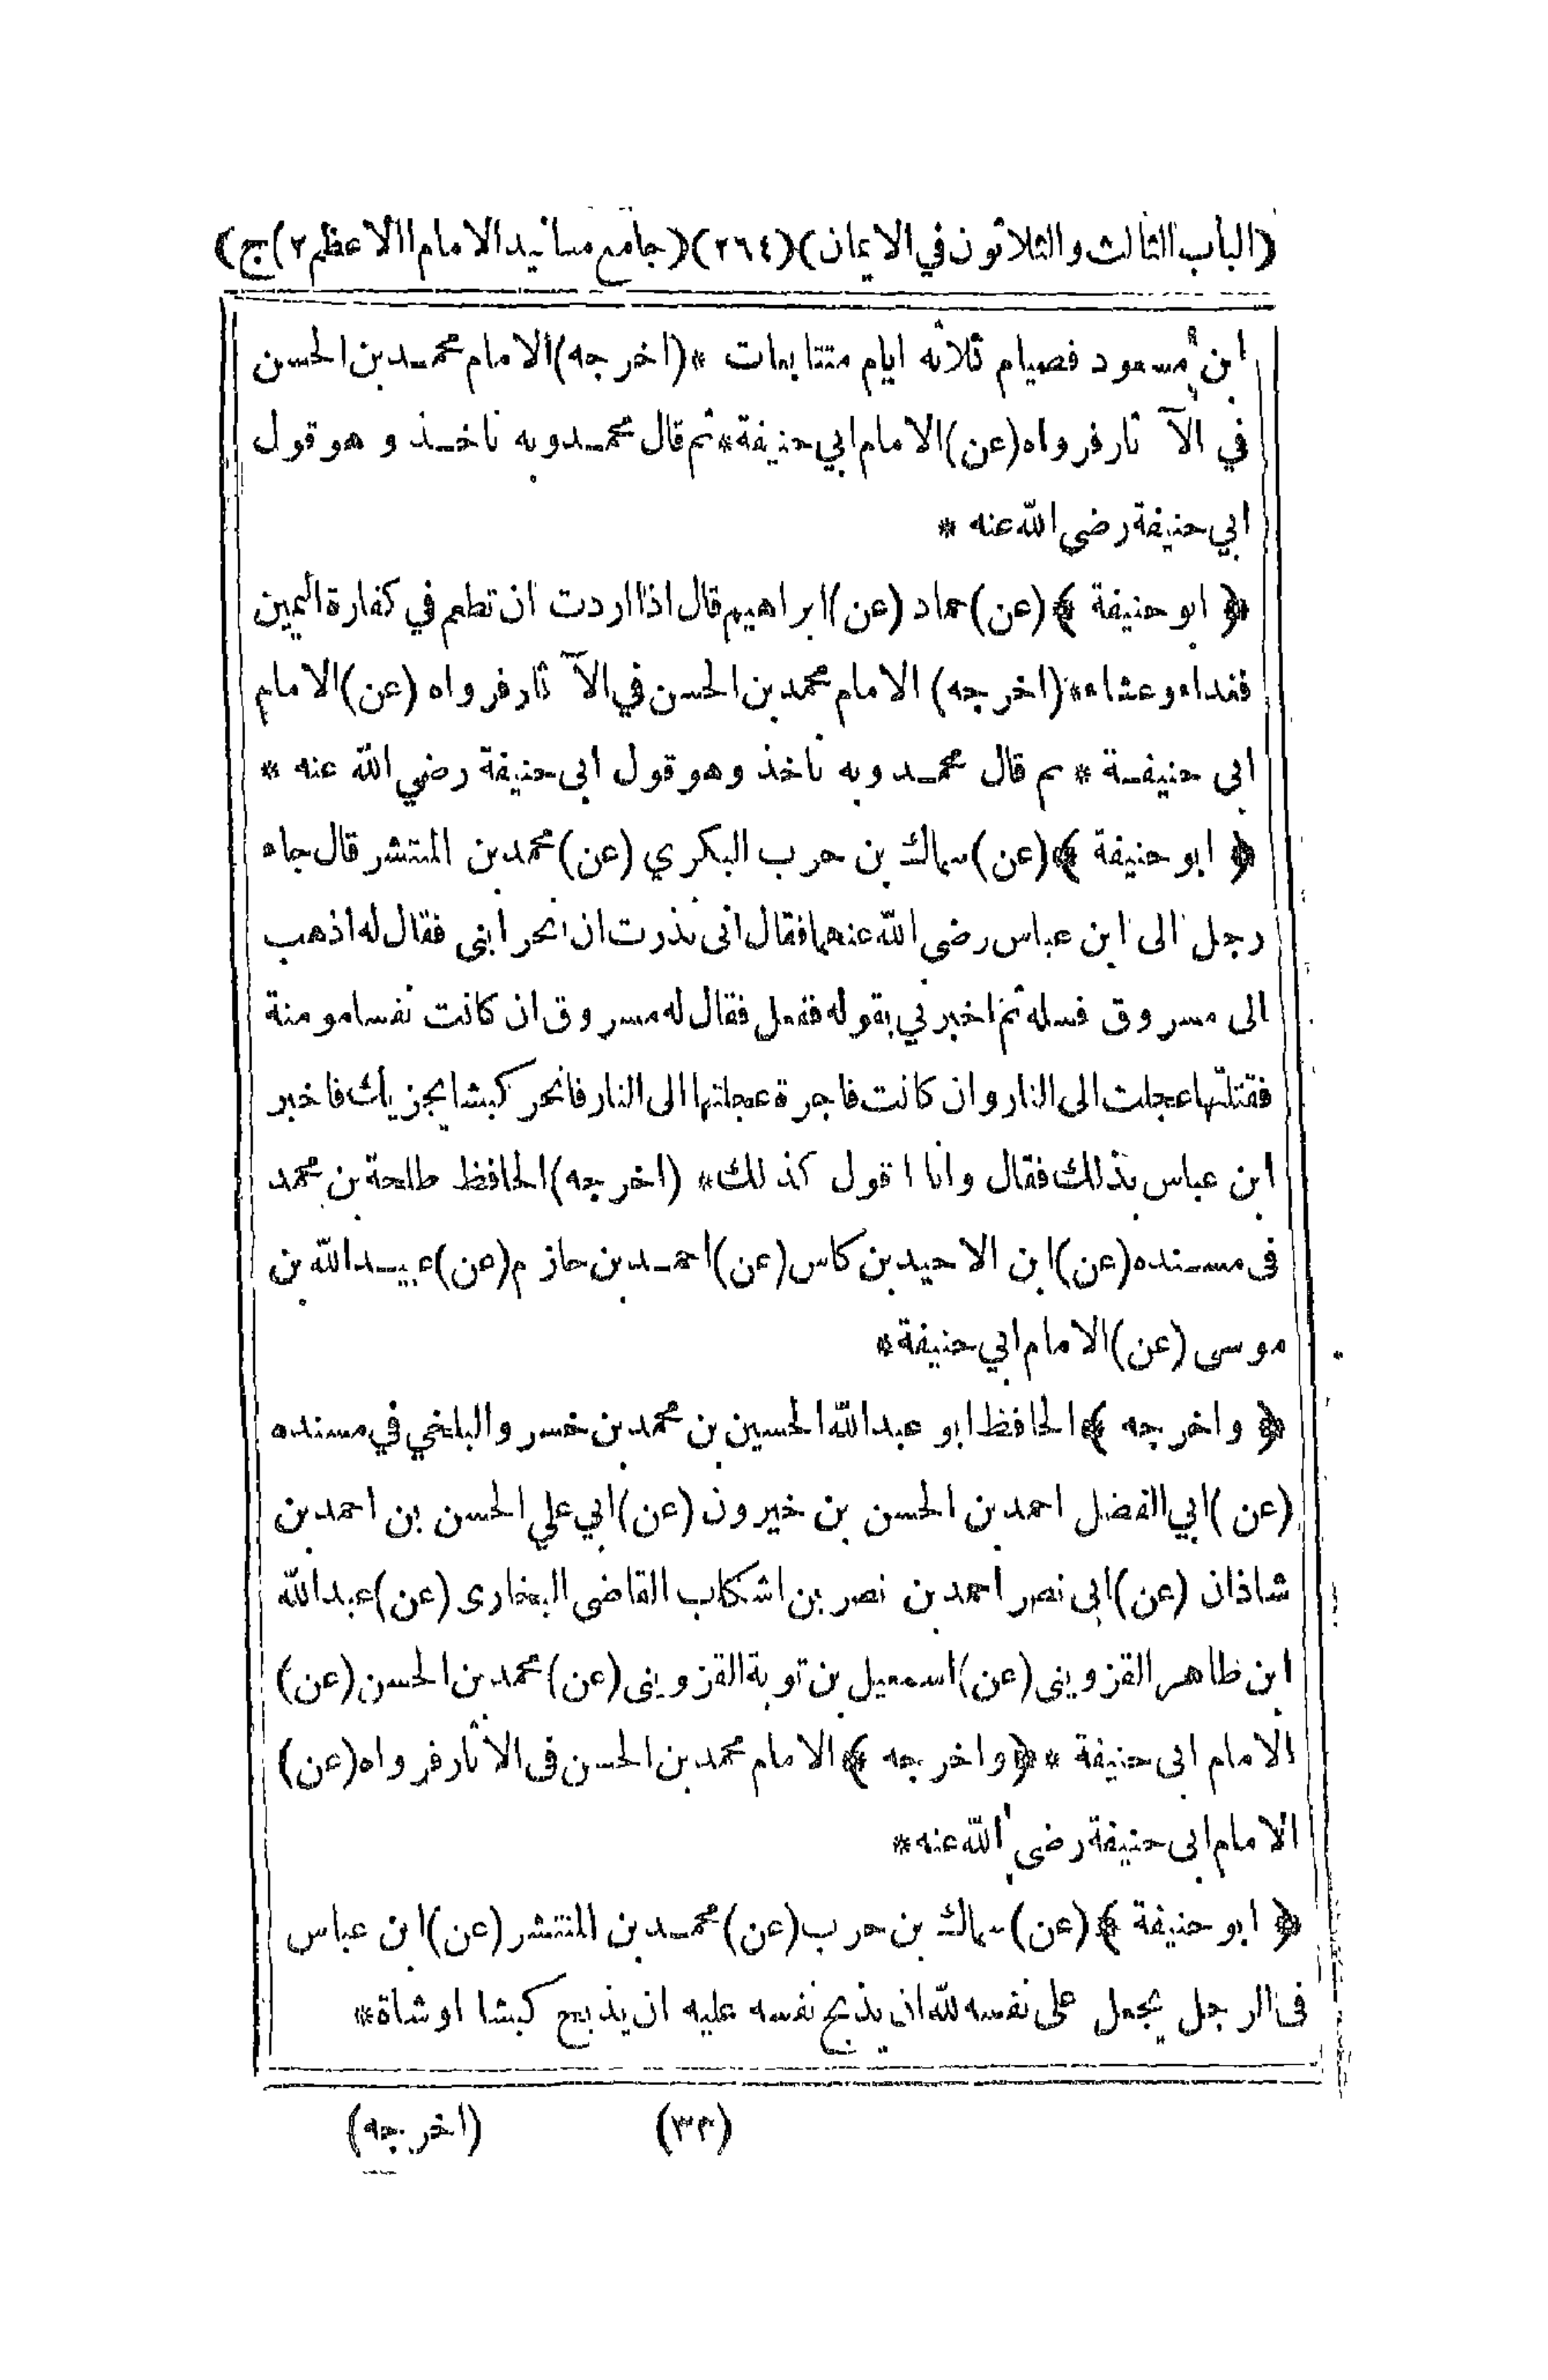 (الباب الثالث والثلاثون في الايمان)(٢٦٤)(جامع مسانيد الامام الاعظم ٢)ج)
ابن مسعود فصيام ثلاثه ايام متتابعات * (اخرجه)الامام محمد بن الحسن
في الآثار فرواه(عن)الامام ابي حنيفة * ثم قال محمد وبه ناخذ و هو قول
ابي حنيفة رضي الله عنه *
﴿ ابو حنيفة ﴾ (عن)حماد (عن)ابراهيم قال اذا اردت ان تطعم في كفارة اليمين
فغداء وعشاء * (اخرجه) الامام محمد بن الحسن في الآثار فرواه (عن)الامام
ابى حنيفة * ثم قال محمد وبه ناخذ وهو قول ابى حنيفة رضي الله عنه *
﴿ ابو حنيفة ﴾(عن)سماك بن حرب البكري (عن)محمد بن المنتشر قال جاء
رجل الى ابن عباس رضى الله عنهما فقال انى نذرت ان انحر ابنى فقال له اذهب
الى مسروق فسله ثم اخبرني بقوله ففعل فقال له مسروق ان كانت نفسا مومنة
فقتلتها عجلت الى النار وان كانت فاجرة عجلتها الى النار فانحر كبشا يجزيك فاخبر
ابن عباس بذلك فقال وانا اقول كذلك * (اخرجه)الحافظ طلحة بن محمد
فى مسنده(عن)ابن الاحيد بن كاس(عن)احمد بن حازم(عن)عبيد الله بن
موسى (عن)الامام ابي حنيفة *
﴿ واخرجه ﴾ الحافظ ابو عبد الله الحسين بن محمد بن خسرو البلخي في مسنده
(عن)ابي الفضل احمد بن الحسن بن خيرون (عن)ابي علي الحسن بن احمد بن
شاذان (عن)ابى نصر احمد بن نصر بن اشكاب القاضى البخارى (عن)عبد الله
ابن طاهر القزوينى(عن)اسمعيل بن توبة القزوينى(عن)محمد بن الحسن(عن)
الامام ابى حنيفة * ﴿ واخرجه ﴾ الامام محمد بن الحسن فى الاثار فرواه(عن)
الامام ابى حنيفة رضى الله عنه *
﴿ ابو حنيفة ﴾ (عن)سماك بن حرب(عن)محمد بن المنتشر(عن)ابن عباس
فى الرجل يجعل على نفسه لله ان يذبح نفسه عليه ان يذبح كبشا او شاة *
(٣٣) (اخرجه)